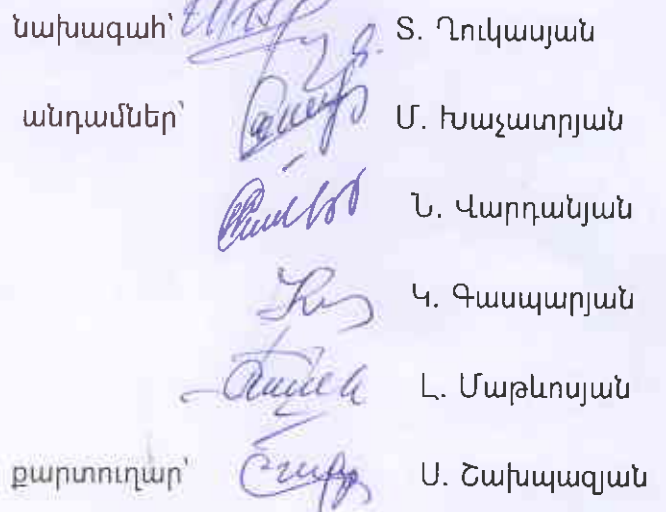 նախագահ՝ Տ. Ղուկասյան
անդամներ՝ Մ. Խաչատրյան
Ն. Վարդանյան
Կ. Գասպարյան
Լ. Մաթևոսյան
քարտուղար՝ Ս. Շախպազյան